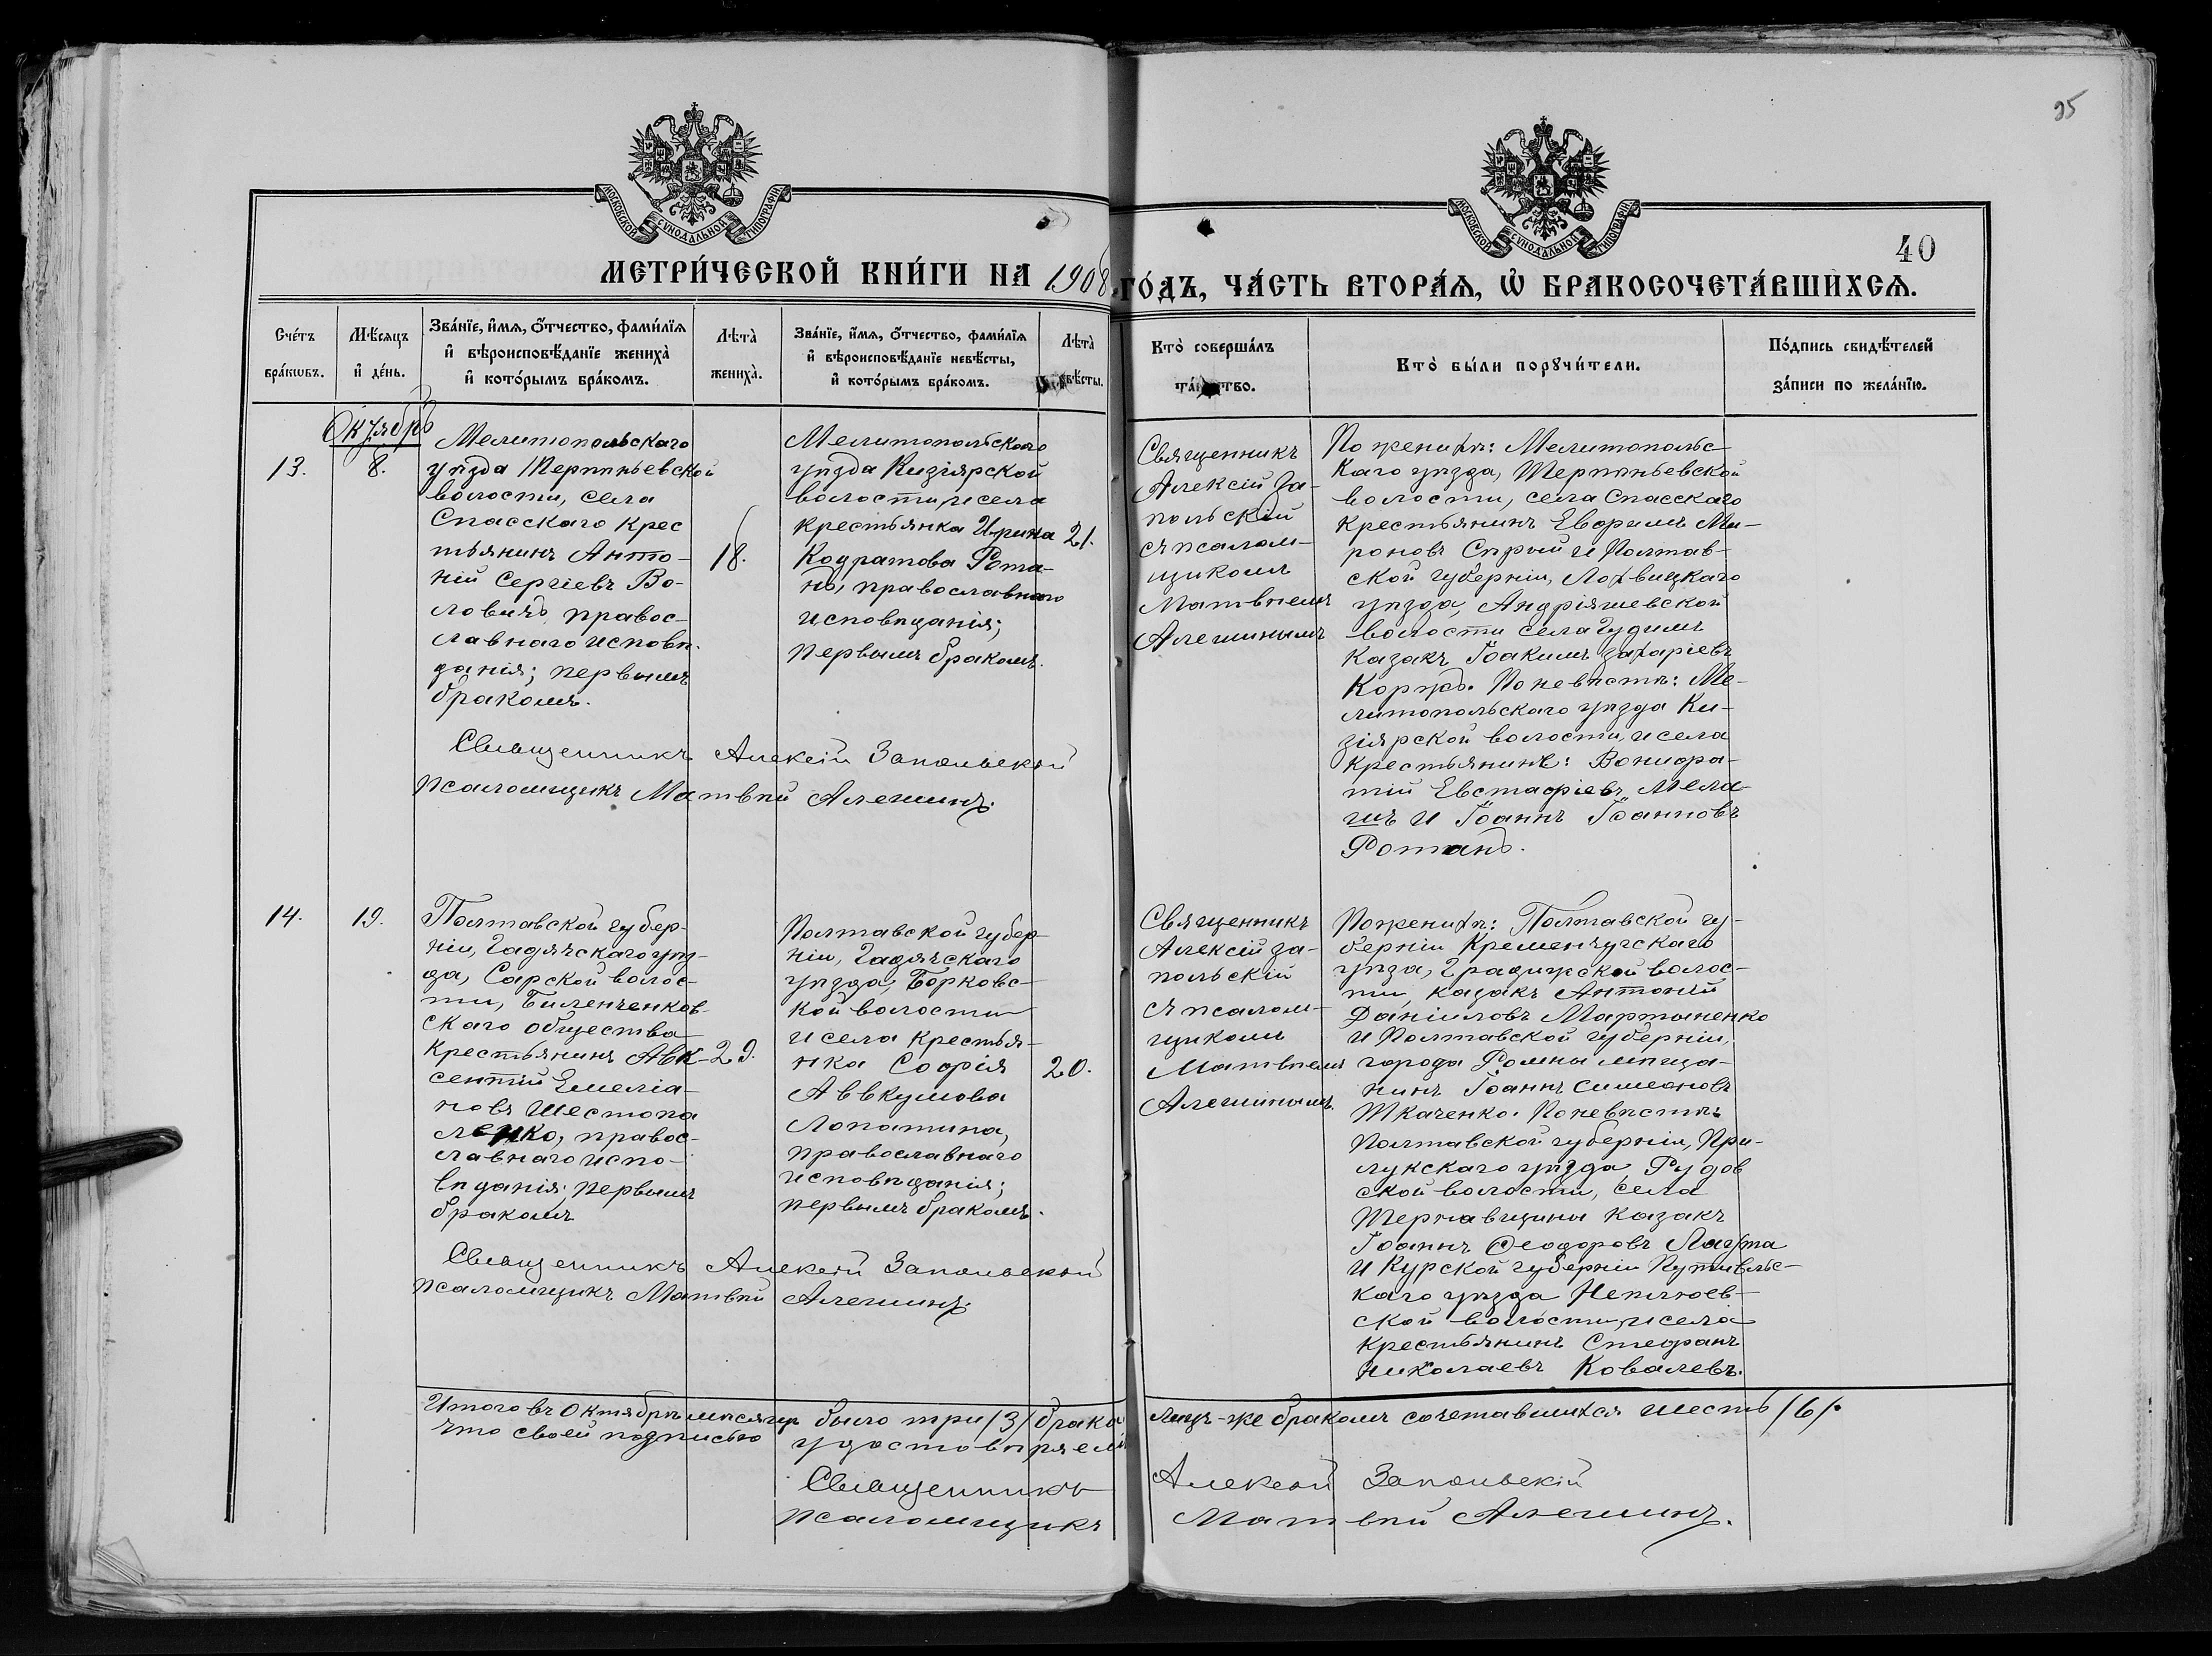 35
МОСКОВСКОЙ СѴНОДАЛЬНОЙ ТИПОГРАФІИ
МОСКОВСКОЙ СѴНОДАЛЬНОЙ ТИПОГРАФІИ
40
МЕТРИ́ЧЕСКОЙ КНИ́ГИ НА 1908 ГО́ДЪ, ЧА́СТЬ ВТОРА́Ѧ, Ѡ҆ БРАКОСОЧЕТА́ВШИХСѦ.
Сче́тъ
бра́кѡвъ.
Мѣ́сяцъ
и҆ де́нь.
Зва́нїе, и҆́мѧ, ѻ҆́тчество, фами́лїѧ
и҆ вѣроисповѣ́данїе жениха̀
и҆ кото́рымъ бра́комъ.
Лѣта̀
жениха̀.
Зва́нїе, и҆́мѧ, ѻ҆́тчество, фами́лїѧ
и҆ вѣроисповѣ́данїе невѣ́сты,
и҆ кото́рымъ бра́комъ.
Лѣта̀
невѣ́сты.
Кто̀ соверша́лъ
та́инство.
Кто̀ бы́ли порꙋчи́тели.
По́дпись свидѣ́телей
за́писи по жела́нїю.
Октябрь
13.
8.
Мелитопольскаго
уѣзда Терпѣньевской
волости, села
Спасскаго крес
тьянинъ Анто-
ній Сергіевъ Во-
ловикъ, правос-
лавнаго исповѣ-
данія; первымъ
бракомъ.
18.
Мелитопольскаго
уѣзда Кизіярской
волости, и села
крестьянка Ирина
Кодратова Рота-
нь, православнаго
исповѣданія;
первымъ бракомъ.
21.
Священникъ
Алексій За-
польскій
съ псалом-
щикомъ
Матвѣемъ
Алешинымъ
По женихѣ: Мелитопольс-
каго уѣзда, Терпѣньевской
волости, села Спасскаго
крестьянинъ Ефремъ Ми-
роновъ Сѣрый и Полтав-
ской губерніи, Лохвицкаго
уѣзда, Андріяшевской
волости села Гудимъ
казакъ Іоакимъ Захаріевъ
Коржъ. По невѣстѣ: Ме-
литопольскаго уѣзда Ки-
зіярской волости, и села
крестьянинѣ: Вонифа-
тій Евстафіевъ Мела-
шъ и Іоаннъ Іоанновъ
Ротань.
Священникъ Алексій Запольскій
Псаломщикъ Матвѣй Алешинъ.
14.
19.
Полтавской губер-
ніи, Гадячскаго уѣз-
да, Сарской волос-
ти, Биленченков-
скаго общества
крестьянинъ Авк-
сентій Емеліа-
новъ Шестопа
ленко, правос-
лавнаго испо-
вѣданія; первымъ
бракомъ
29.
Полтавской губер-
ніи, Гадячскаго
уѣзда, Борковс-
кой волости
и села крестья-
нка Софія
Аввкумова
Лопатина,
православнаго
исповѣданія;
первымъ бракомъ.
20.
Священникъ
Алексій За-
польскій
съ псалом-
щикомъ
Матвѣемъ
Алешинымъ.
По женихѣ: Полтавской гу-
берніи Кременчугскаго
уѣзда, Градижской волос-
ти, казакъ Антоній
Даніиловъ Мартыненко
и Полтавской губерніи,
города Ромны мѣща-
нинъ Іоаннъ Симеоновъ
Ткаченко. По невѣстѣ:
Полтавской губерніи, При-
лукскаго уѣзда, Рудов
ской волости, села
Терновщины казакъ
Іоаннъ Феодоровъ Лагута
и Курской губерніи Путивльс-
каго уѣзда Неплюев-
ской волости, и села
крестьянинъ Стефанъ
Николаевъ Ковалевъ.
Священникъ Алексій Запольскій
Псаломщикъ Матвѣй Алешинъ.
Итого въ Октябрѣ мѣсяцѣ было три /3/ брака лицъ-же бракомъ сочетавшихся шесть /6/.
что своей подписью удостовѣряемъ
Священникъ Алексій Запольскій
Псаломщикъ Матвѣй Алешинъ.